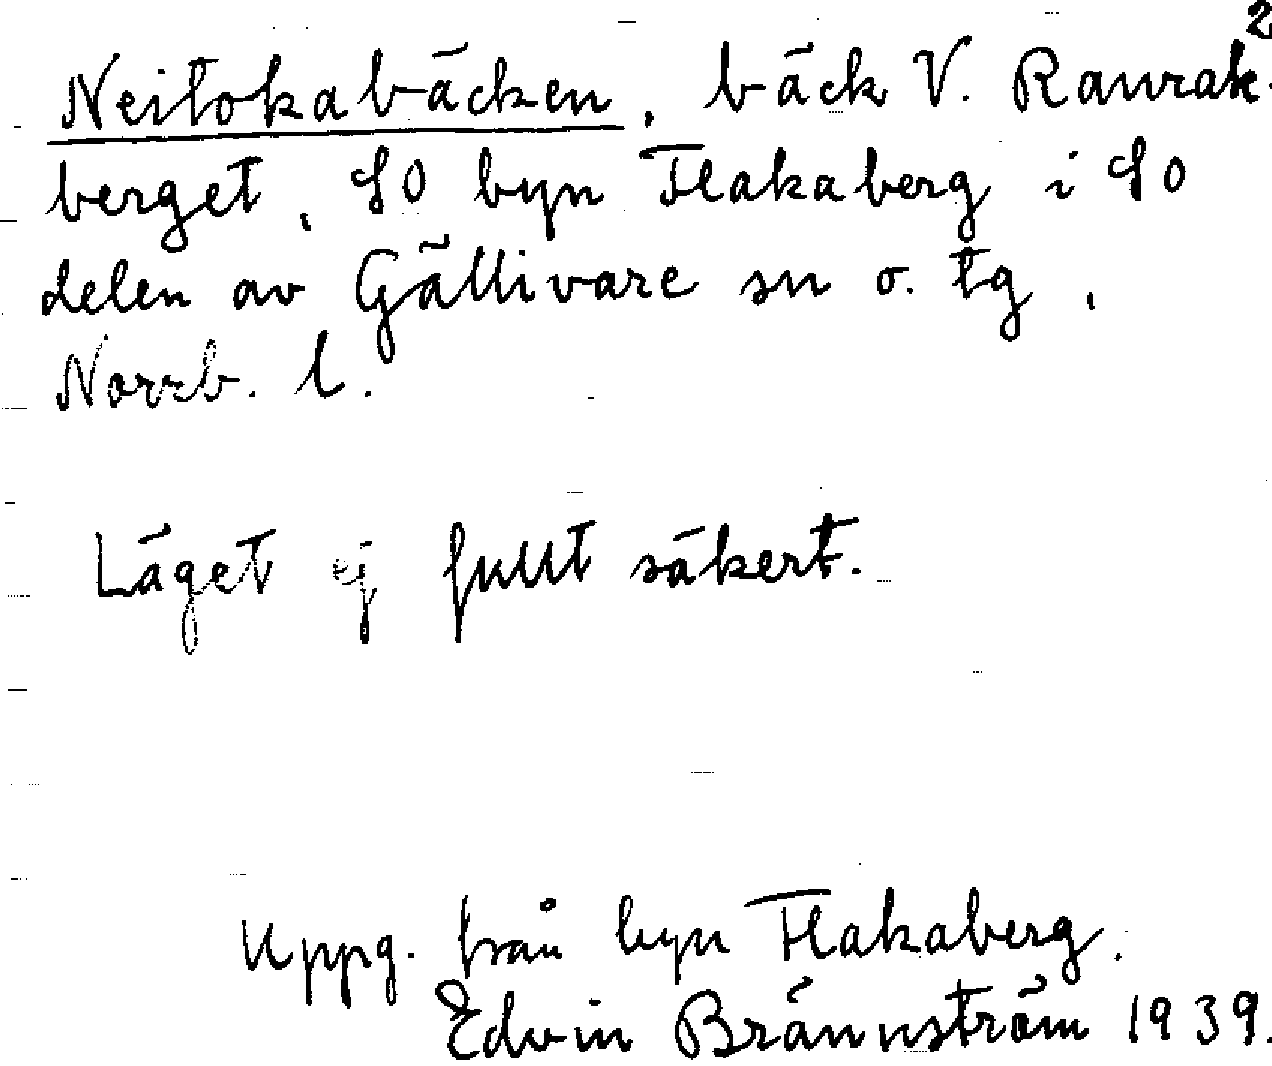 2
Neitokabäcken, bäck V. Rawrak-
berget, SO byn Flakaberg i SO
delen av Gällivare sn o. tg,
Norrb. l.
Läget ej fullt säkert.
Uppg. från byn Flakaberg.
Edvin Brännström 1939.